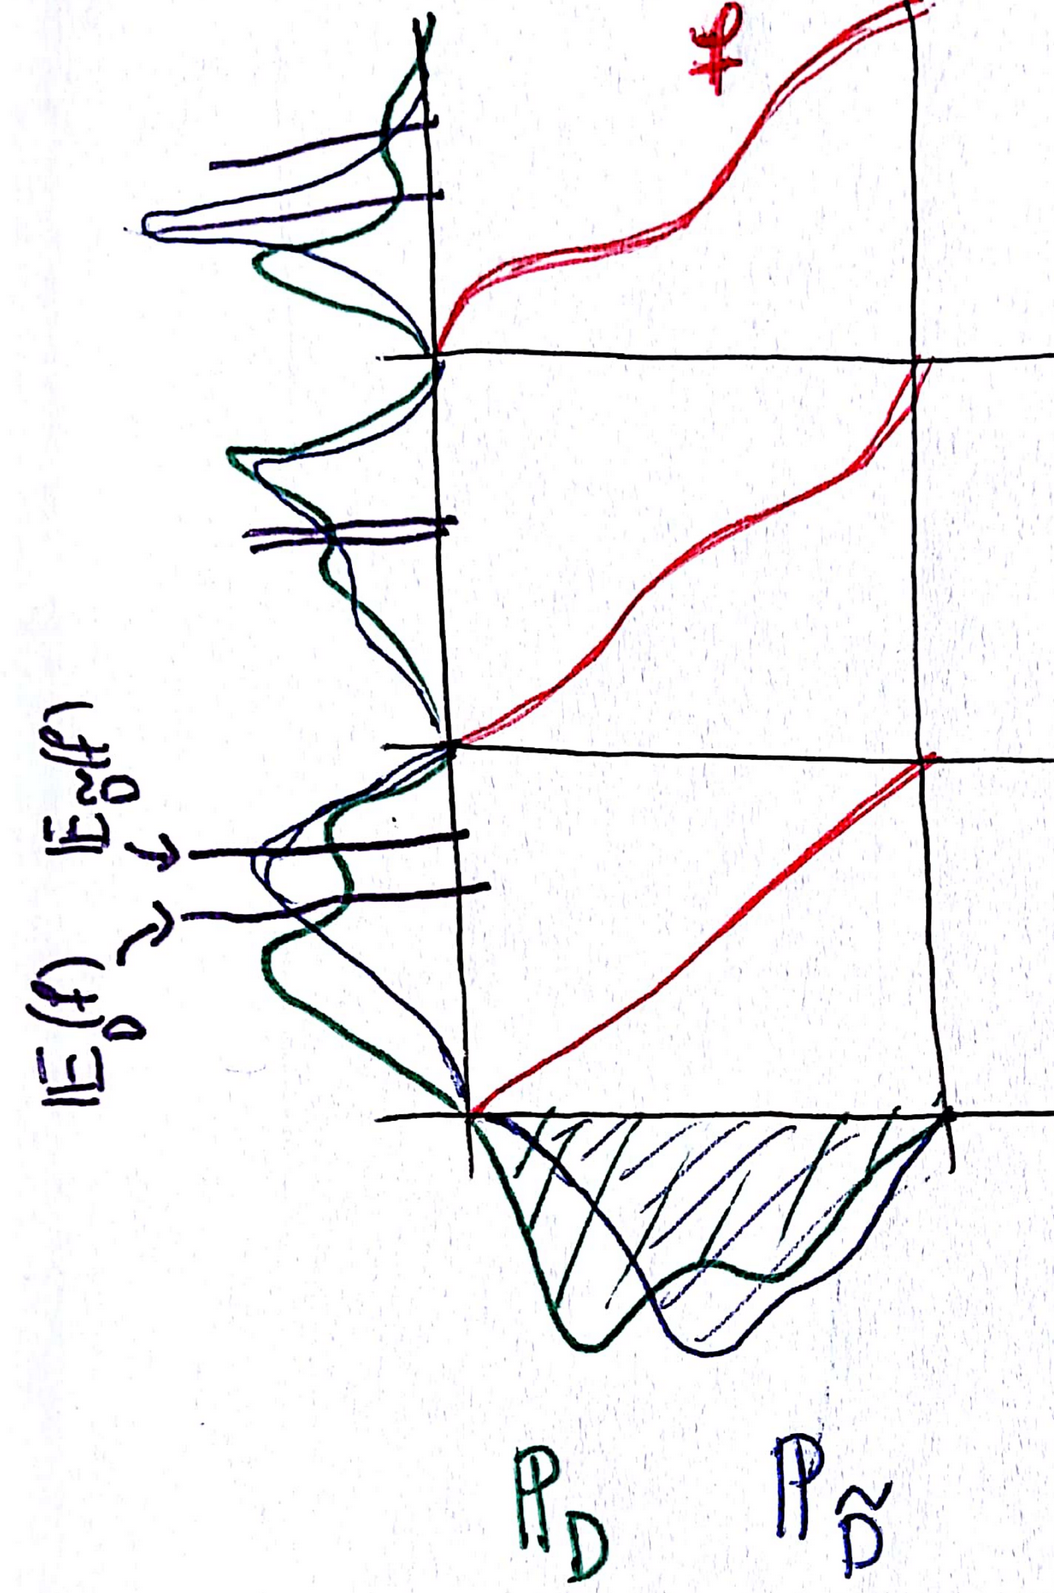 f
𝔼_D̃(f)
𝔼_D(f)
ℙ_D ℙ_D̃